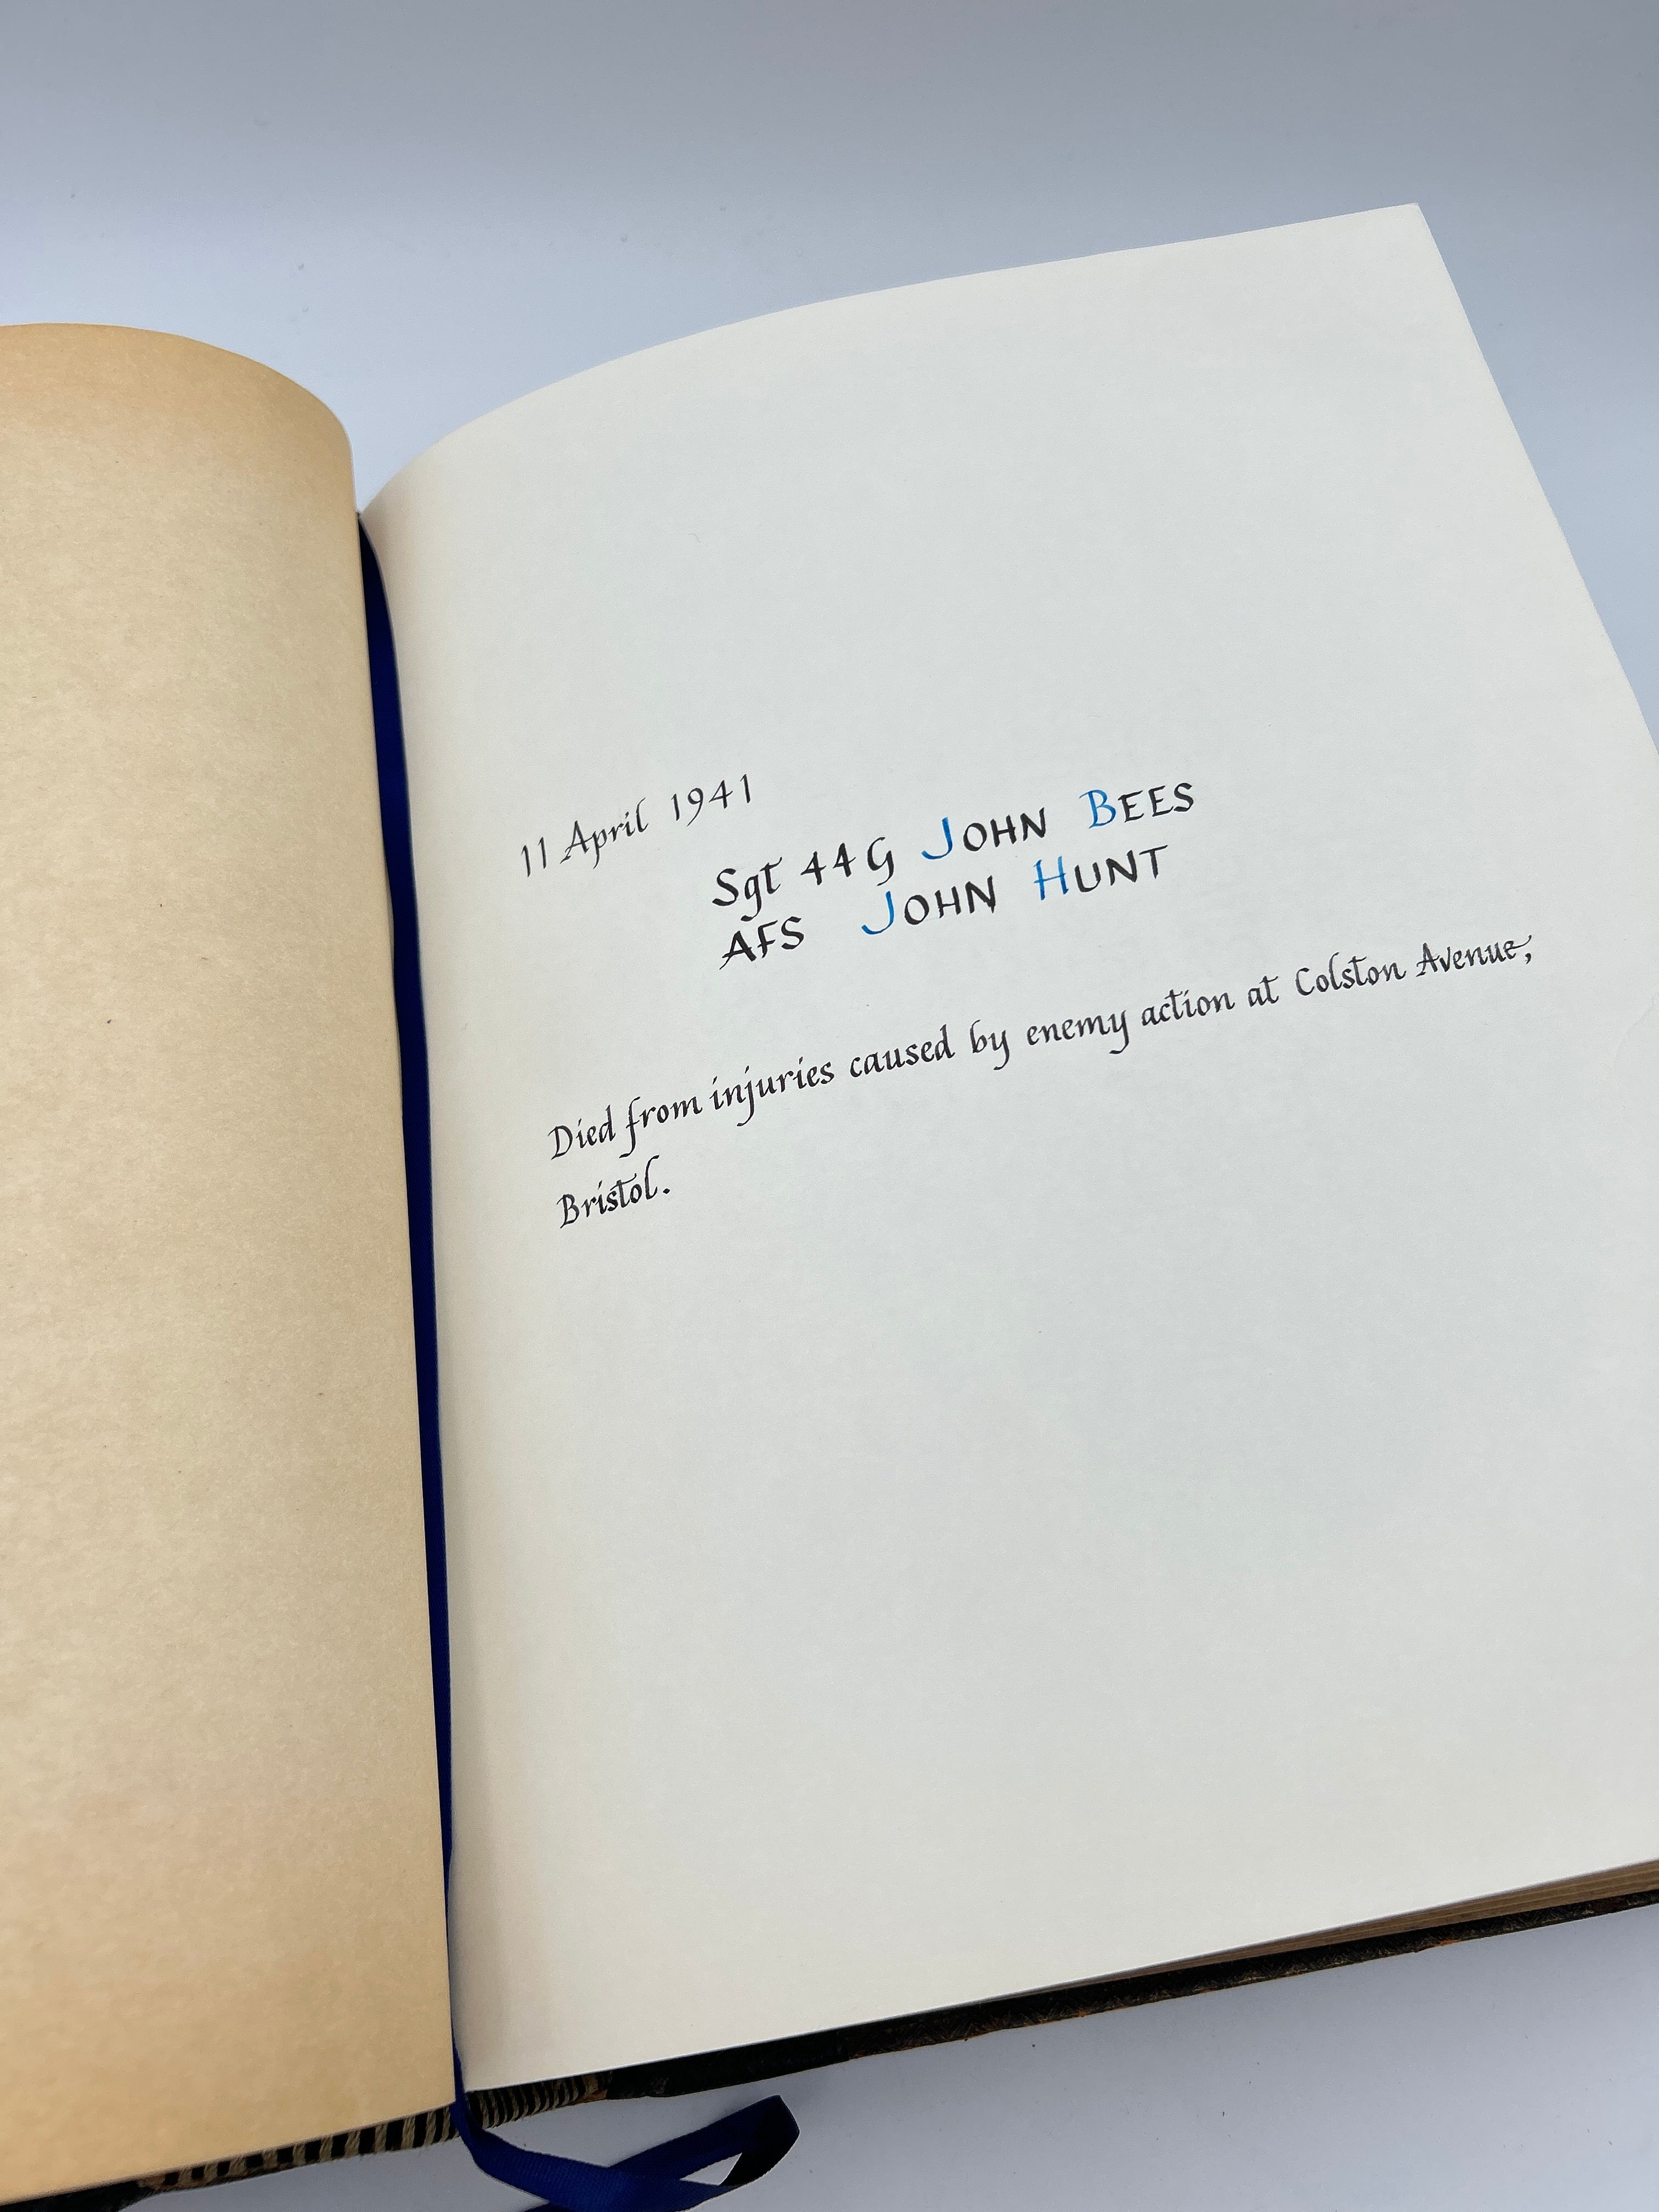 11 April 1941
Sgt 44G JOHN BEES
AFS JOHN HUNT
Died from injuries caused by enemy action at Colston Avenue,
Bristol.